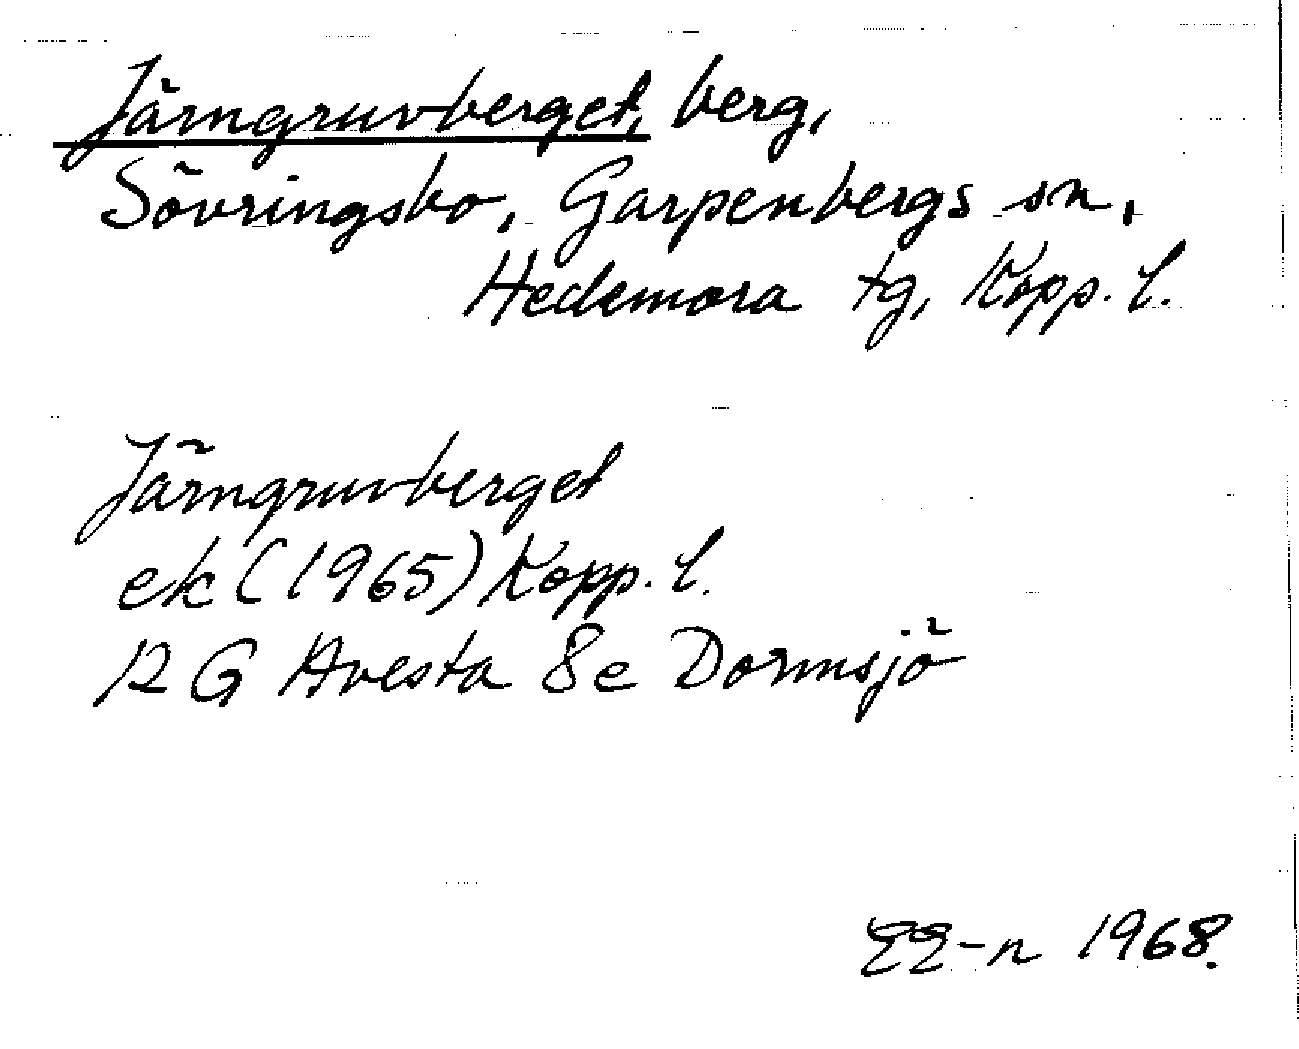 Järngruvberget, berg,
Sövringsbo, Garpenbergs sn,
Hedemora tg, Kopp. l.
Järngruvberget
ek (1965) Kopp. l.
12 G Avesta 8e Dormsjö
EE-n 1968.